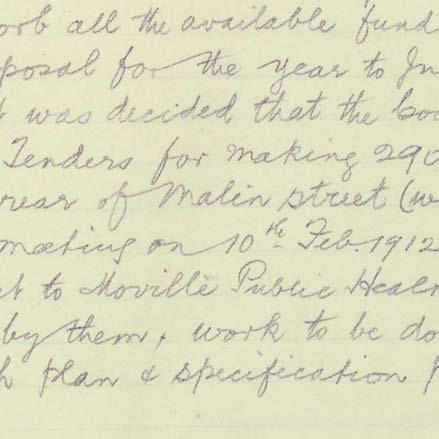 orb all the available fund
posal for the year to
t was decided that the
Tenders for making 290
rear of Malin street (w
meeting on 10th Feb. 1912
t to Moville Public Heal
by them, work to be do
h plan & specification